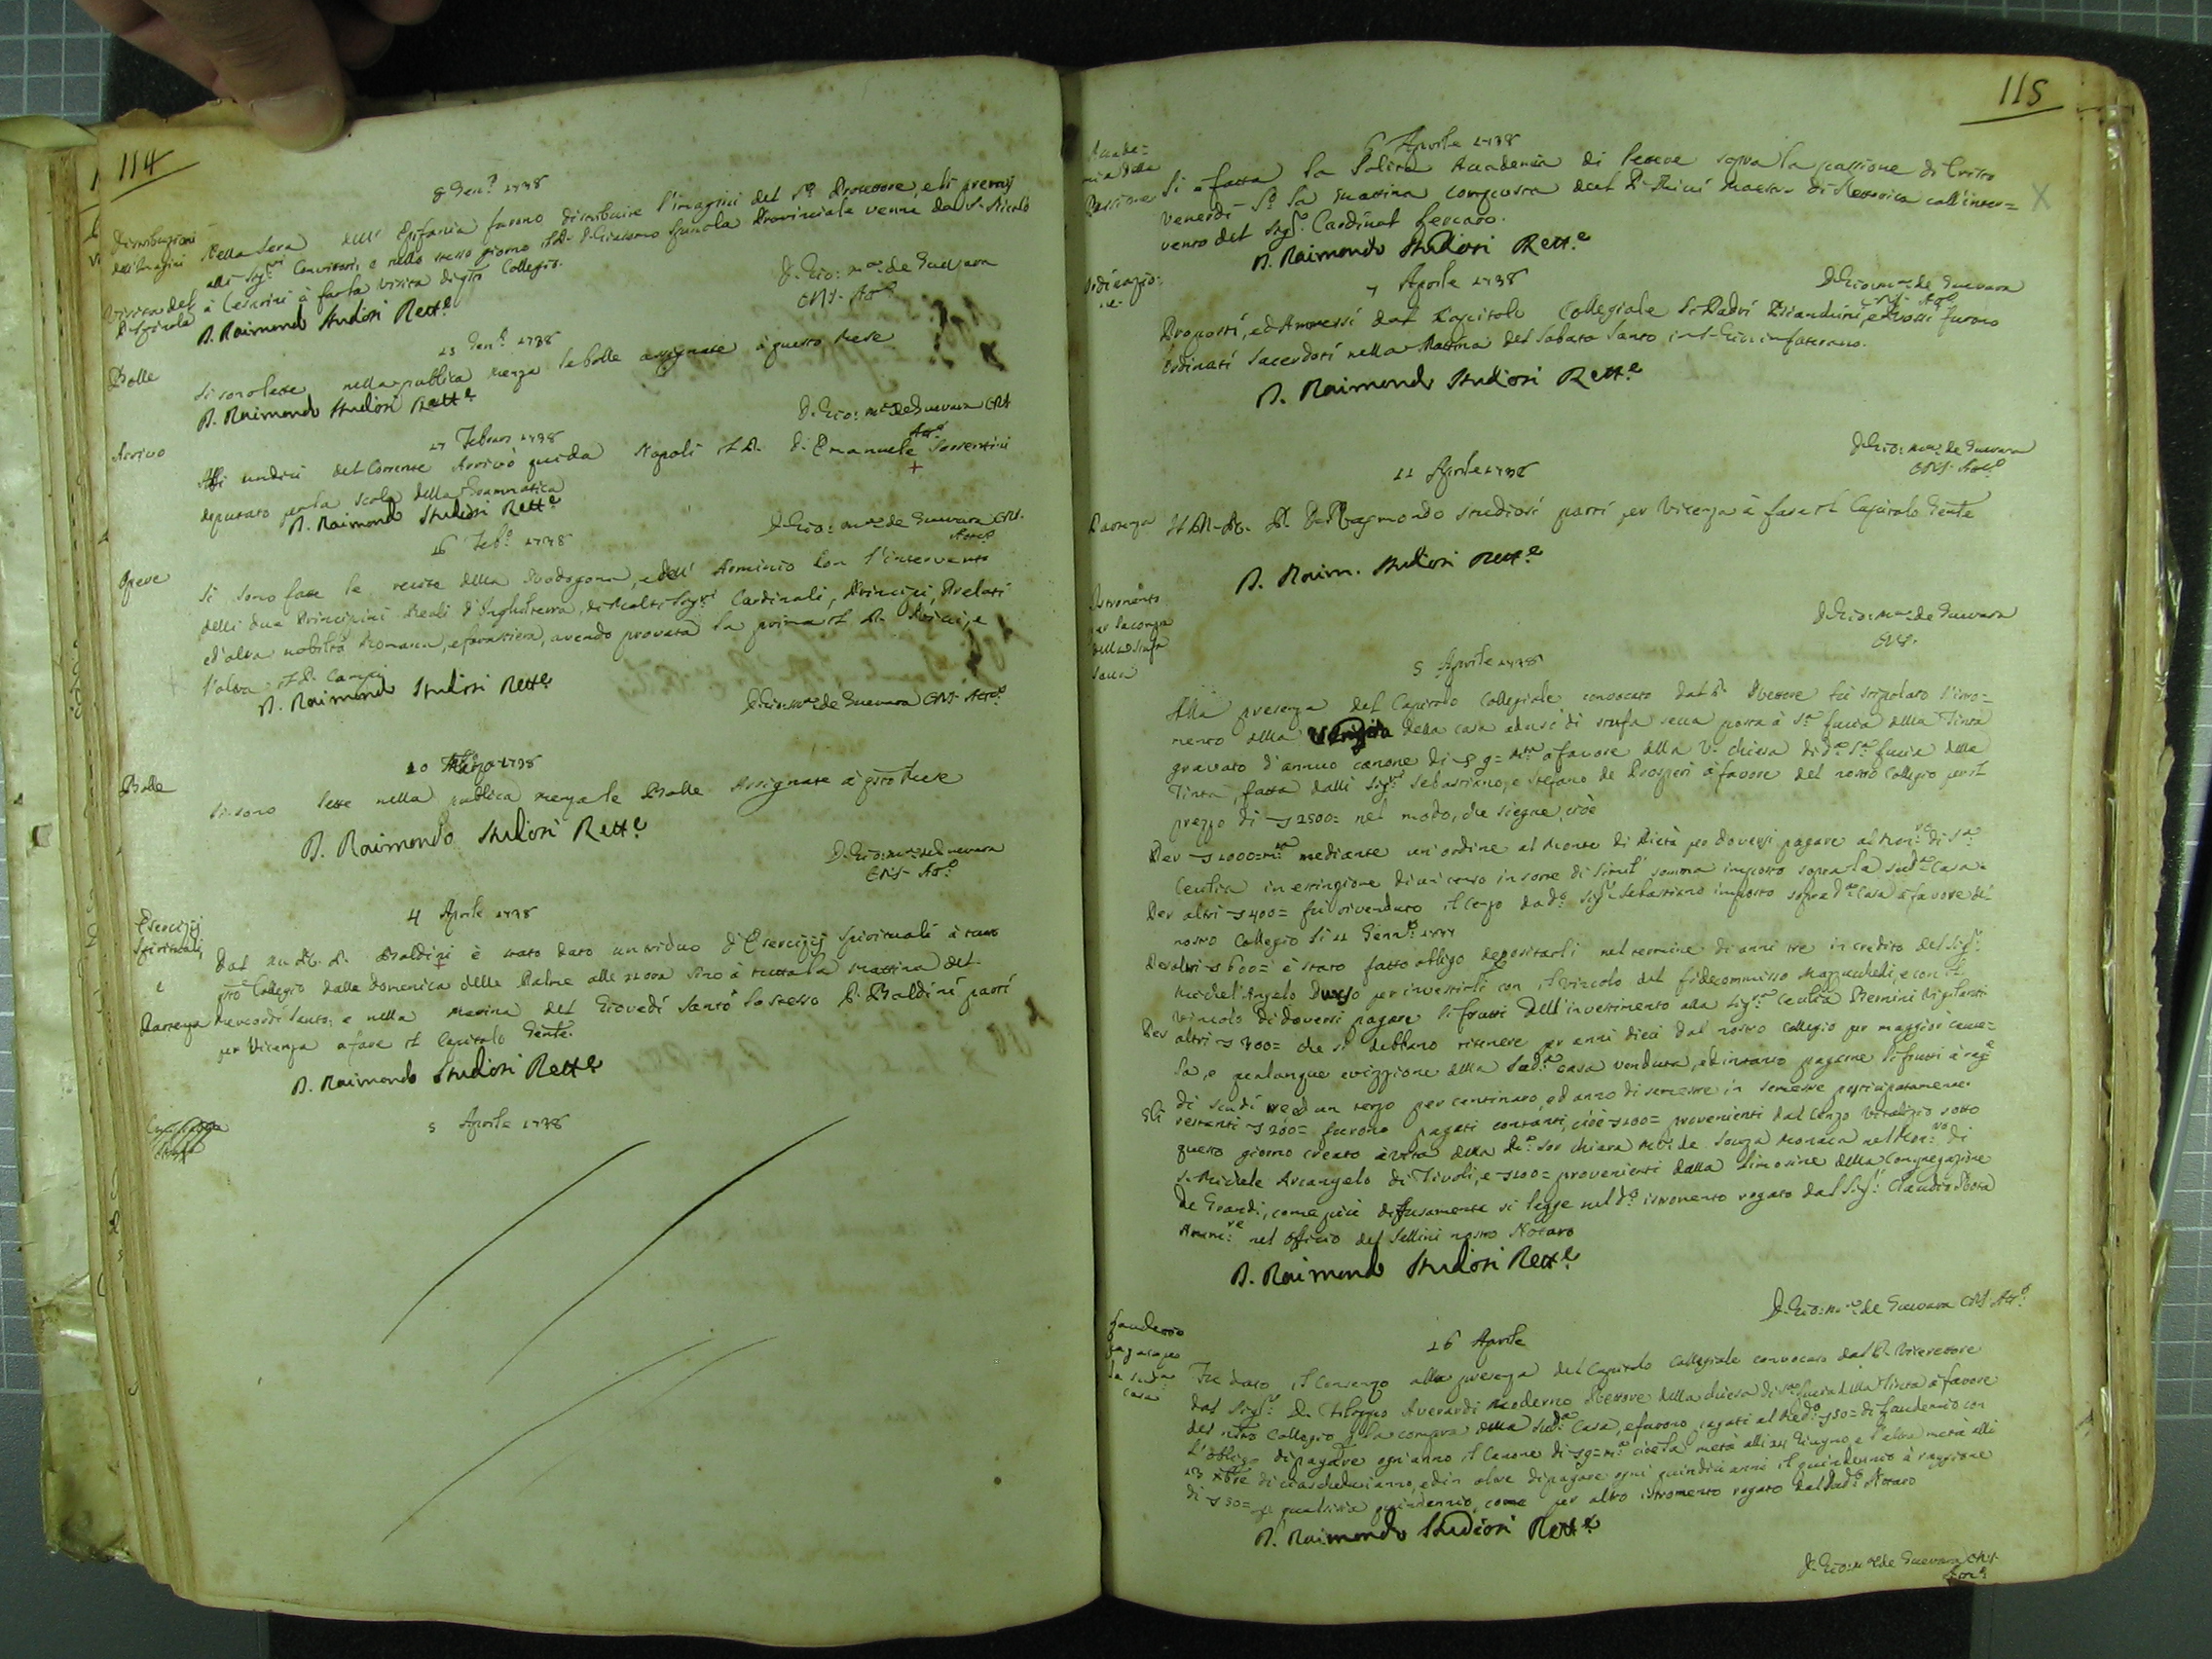 114
8 Genn.o 1738
Distribuzioni
dell'Imagini
Nella sera dell' Epifania furono distribuite l'imagini del S.o Protettore, e li premij
alli Sig.ri Convittori, e nello stesso giorno il P. D. Giacomo Spinola Provinciale venne da S. Nicolò
Visita del
P. Spinola
à Cesarini à far la visita di q.sto Collegio.
D. Raimondo Studiosi Rett.e
D. Gio: M.a de Guevara
CRS. Att.o
23 Gen.o 1738
Bolle
Si sono lette nella publica mensa le bolle assignate à questo mese
D. Raimondo Studiosi Rett.e
D. Gio: M.a de Guevara CRS
Att.o
17 Febraro 1738
Arrivo
Alli undici del Corrente Arrivò quì da Napoli il P. D. Emanuele Sorrentini
deputato per la scola della Grammatica
D. Raimondo Studiosi Rett.e
D. Gio: M.a de Guevara CRS.
Att.o
16 Feb.o 1738
Opere
Si sono fatte le recite della Rodogona, e dell' Arminio con l'intervento
delli due Principini Reali d'Inghilterra, di Molti Sig.ri Cardinali, Principi, Prelati
ed'altra nobiltà Romana, e forastiera, avendo provata la prima il P. Rivici, e
l'altra il P. Campi
D. Raimondo Studiosi Rett.e
D. Gio: M.a de Guevara CRS. Att.o
20 Marzo 1738
Bolle
Si sono lette nella publica mensa le Bolle Assignate à q.sto Mese
D. Raimondo Studiosi Rett.e
D. Gio: M.a de Guevara
CRS. Att.o
4 Aprile 1738
Esercizij
Spirituali,
e
Dal M. R. P. Baldini è stato dato un triduo d'Esercizij Spirituali à tutto
q.sto Collegio dalla Domenica delle Palme alle 22 ora sino à tutta la Mattina del
Partenza
Mercordì Santo; e nella Matina del Giovedì Santo lo stesso P. Baldini partì
per Vicenza a fare il Capitolo Gen.le.
D. Raimondo Studiosi Rett.e
5 Aprile 1738
115
6 Aprile 1738
Accade=
mia della
Passione
Si è fatta la Solita Accademia di lettere sopra la passione di Cristo
Venerdì S.o la mattina composta dal P. Rivici Maestro di Rettorica coll'inter=
vento del Sig.r Cardinal Cercaro.
D. Raimondo Studiosi Rett.e
D. Gio: M.a de Guevara
CRS. Att.o
7 Aprile 1738
Ordinazio=
ne
Proposti, ed Ammessi dal Capitolo Collegiale li Padri Pianduini, e Rossi furono
ordinati Sacerdoti nella Mattina del Sabato Santo in S. Gio: in Laterano.
D. Raimondo Studiosi Rett.e
D. Gio: M.a de Guevara
CRS. Att.o
11 Aprile 1738
Partenza
Il M. R. P. D. Raymondo Studiosi partì per Vicenza à fare il Capitolo Gen.te
D. Raim. Studiosi Rett.e
D. Gio: M.a de Guevara
CRS.
Istromento
per la compra
della Stufa
secca
5 Aprile 1738
Alla presenza del Capitolo Collegiale convocato dal P. Rettore fù stipolato l'istro=
mento della Vendita della casa ad uso di stufa secca posta à S.a Lucia della Tinta
gravato d'annuo canone di 9 = m.ta a favore della V. Chiesa di d.a S.a Lucia della
Tinta, fatta dalli Sig.ri Sebastiano, e Stefano de Prosperi à favore del nostro Collegio per il
prezzo di 2500 = nel modo, che siegue, cioè
Per 1000 = m.ta mediante un'ordine al Monte di Pietà per doversi pagare al Mon.ro di S.a
Cecilia in estinzione di un censo in sorte di simil' somma imposto sopra la sud.a Casa.
Per altri 400 = fù rivenduto il Censo da d.o Sig.r Sebastiano imposto sopra d.a Casa à favore del
nostro Collegio li 11 Genn.o
Per altri 600 = è stato fatto obligo depositarli nel termine di anni tre in credito del Sig.r
Michel'Angelo per investirli con il vincolo del fidecommisso Mazzuchelli, e con il
vincolo di doversi pagare li frutti dell'investimento alla Sig.ra Cecilia Bernini
Per altri 300 = che si debbano ritenere per anni dieci dal nostro Collegio per maggior caute=
la, e qualunque evizzione della sud.a casa venduta, ed intanto pagarne li frutti à rag.e
di scudi tre ed un terzo per centinaro, ed anno di semestre in semestre posticipatamente.
Gli restanti 200 = furono pagati contanti, cioè 100 = provenienti dal Censo Vitalizio sotto
questo giorno creato à vita della Rd.a Sor Chiara de Souza Monaca nel Mon.ro di
S. Michele Arcangelo di Tivoli, e 100 = provenienti dalla limosine della Congregazione
De Grandi, come più diffusamente si legge nel d.o istromento rogato dal Sig.r Claudio Rota
nel Officio del Sellini nostro Notaro
D. Raimondo Studiosi Rett.e
D. Gio: M.a de Guevara CRS. Att.o
Laudemio
pagato per
la sud.a
casa
16 Aprile
Fù dato il Consenso alla presenza del Capitolo Collegiale convocato dal P. Vicerettore
dal Sig.r D. Filippo Averardi Moderno Rettore della Chiesa di S.a Lucia della Tinta à favore
del n.ro Collegio p la compra della Sud.a Casa, e furono pagati al Med.o 50 = di Laudemio con
l'obligo di pagare ogn'anno il Canone di 9 = m.ta cioè la metà alli 24 Giugno, e l'altra metà alli
23 Xbre di ciascheduni anno, ed in oltre di pagare ogni quindici anni il quindennio à raggione
di 50 = p qualsisia quindennio, come per altro istromento rogato dal Sud.o Notaro
D. Raimondo Studiosi Rett.e
D. Gio: M.a de Guevara CRS.
Att.o